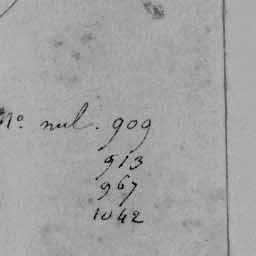 No. nul. 909
913
967
1042